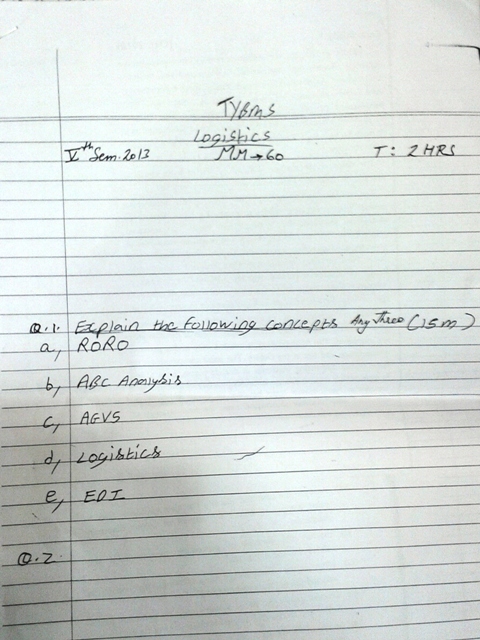 TYBMS
Logistics
Vth Sem. 2013 MM → 60 T: 2 HRS
Q.1. Explain the following concepts Any Three (15 m)
a, RORO
b, ABC Analysis
c, AGVS
d, Logistics
e, EDI
Q.2.